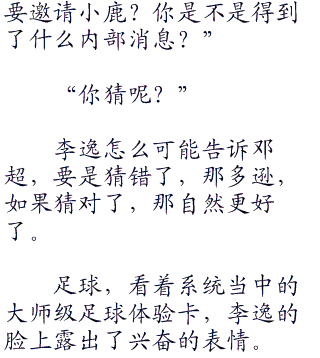 要邀请小鹿？你是不是得到
了什么内部消息？”
“你猜呢？”
李逸怎么可能告诉邓
超，要是猜错了，那多逊，
如果猜对了，那自然更好
了。
足球，看着系统当中的
大师级足球体验卡，李逸的
脸上露出了兴奋的表情。